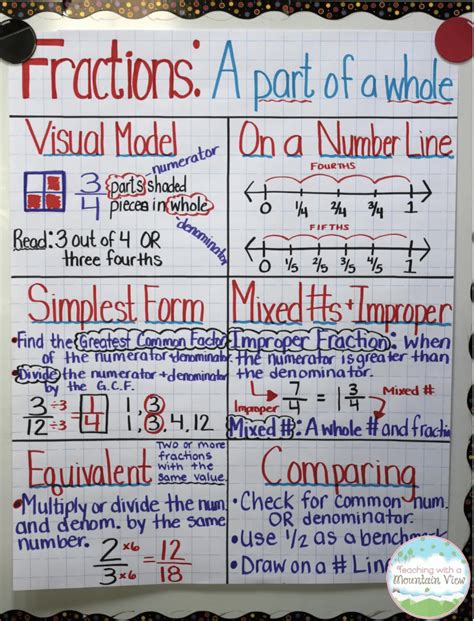 Fractions: A part of a whole
Visual Model
3/4
numerator
parts shaded
pieces in whole
denominator
Read: 3 out of 4 OR
three fourths
On a Number Line
FOURTHS
0 1/4 2/4 3/4 1
FIFTHS
0 1/5 2/5 3/5 4/5 1
Simplest Form
•Find the Greatest Common Factor
of the numerator + denominator.
•Divide the numerator + denominator
by the G.C.F.
3/12 ÷3 ÷3 = 1/4 1, 3 1, 3, 4, 12
Mixed #s + Improper
Improper Fraction: When
the numerator is greater than
the denominator.
Improper 7/4 = 1 3/4 Mixed #
Mixed #: A whole # and fractio
Equivalent
Two or more
fractions
with the
same value.
•Multiply or divide the num.
and denom. by the same
number.
2/3 x6 x6 = 12/18
Comparing
•Check for common num.
OR denominator.
•Use 1/2 as a benchm
•Draw on a # Lin
Teaching with a
Mountain View